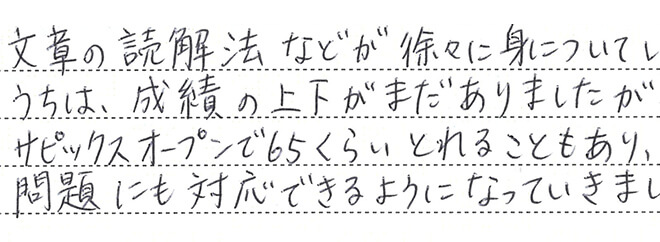 文章の読解法などが徐々に身についてし
うちは、成績の上下がまだありましたが
サピックスオープンで65くらいとれることもあり、
問題にも対応できるようになっていきまし